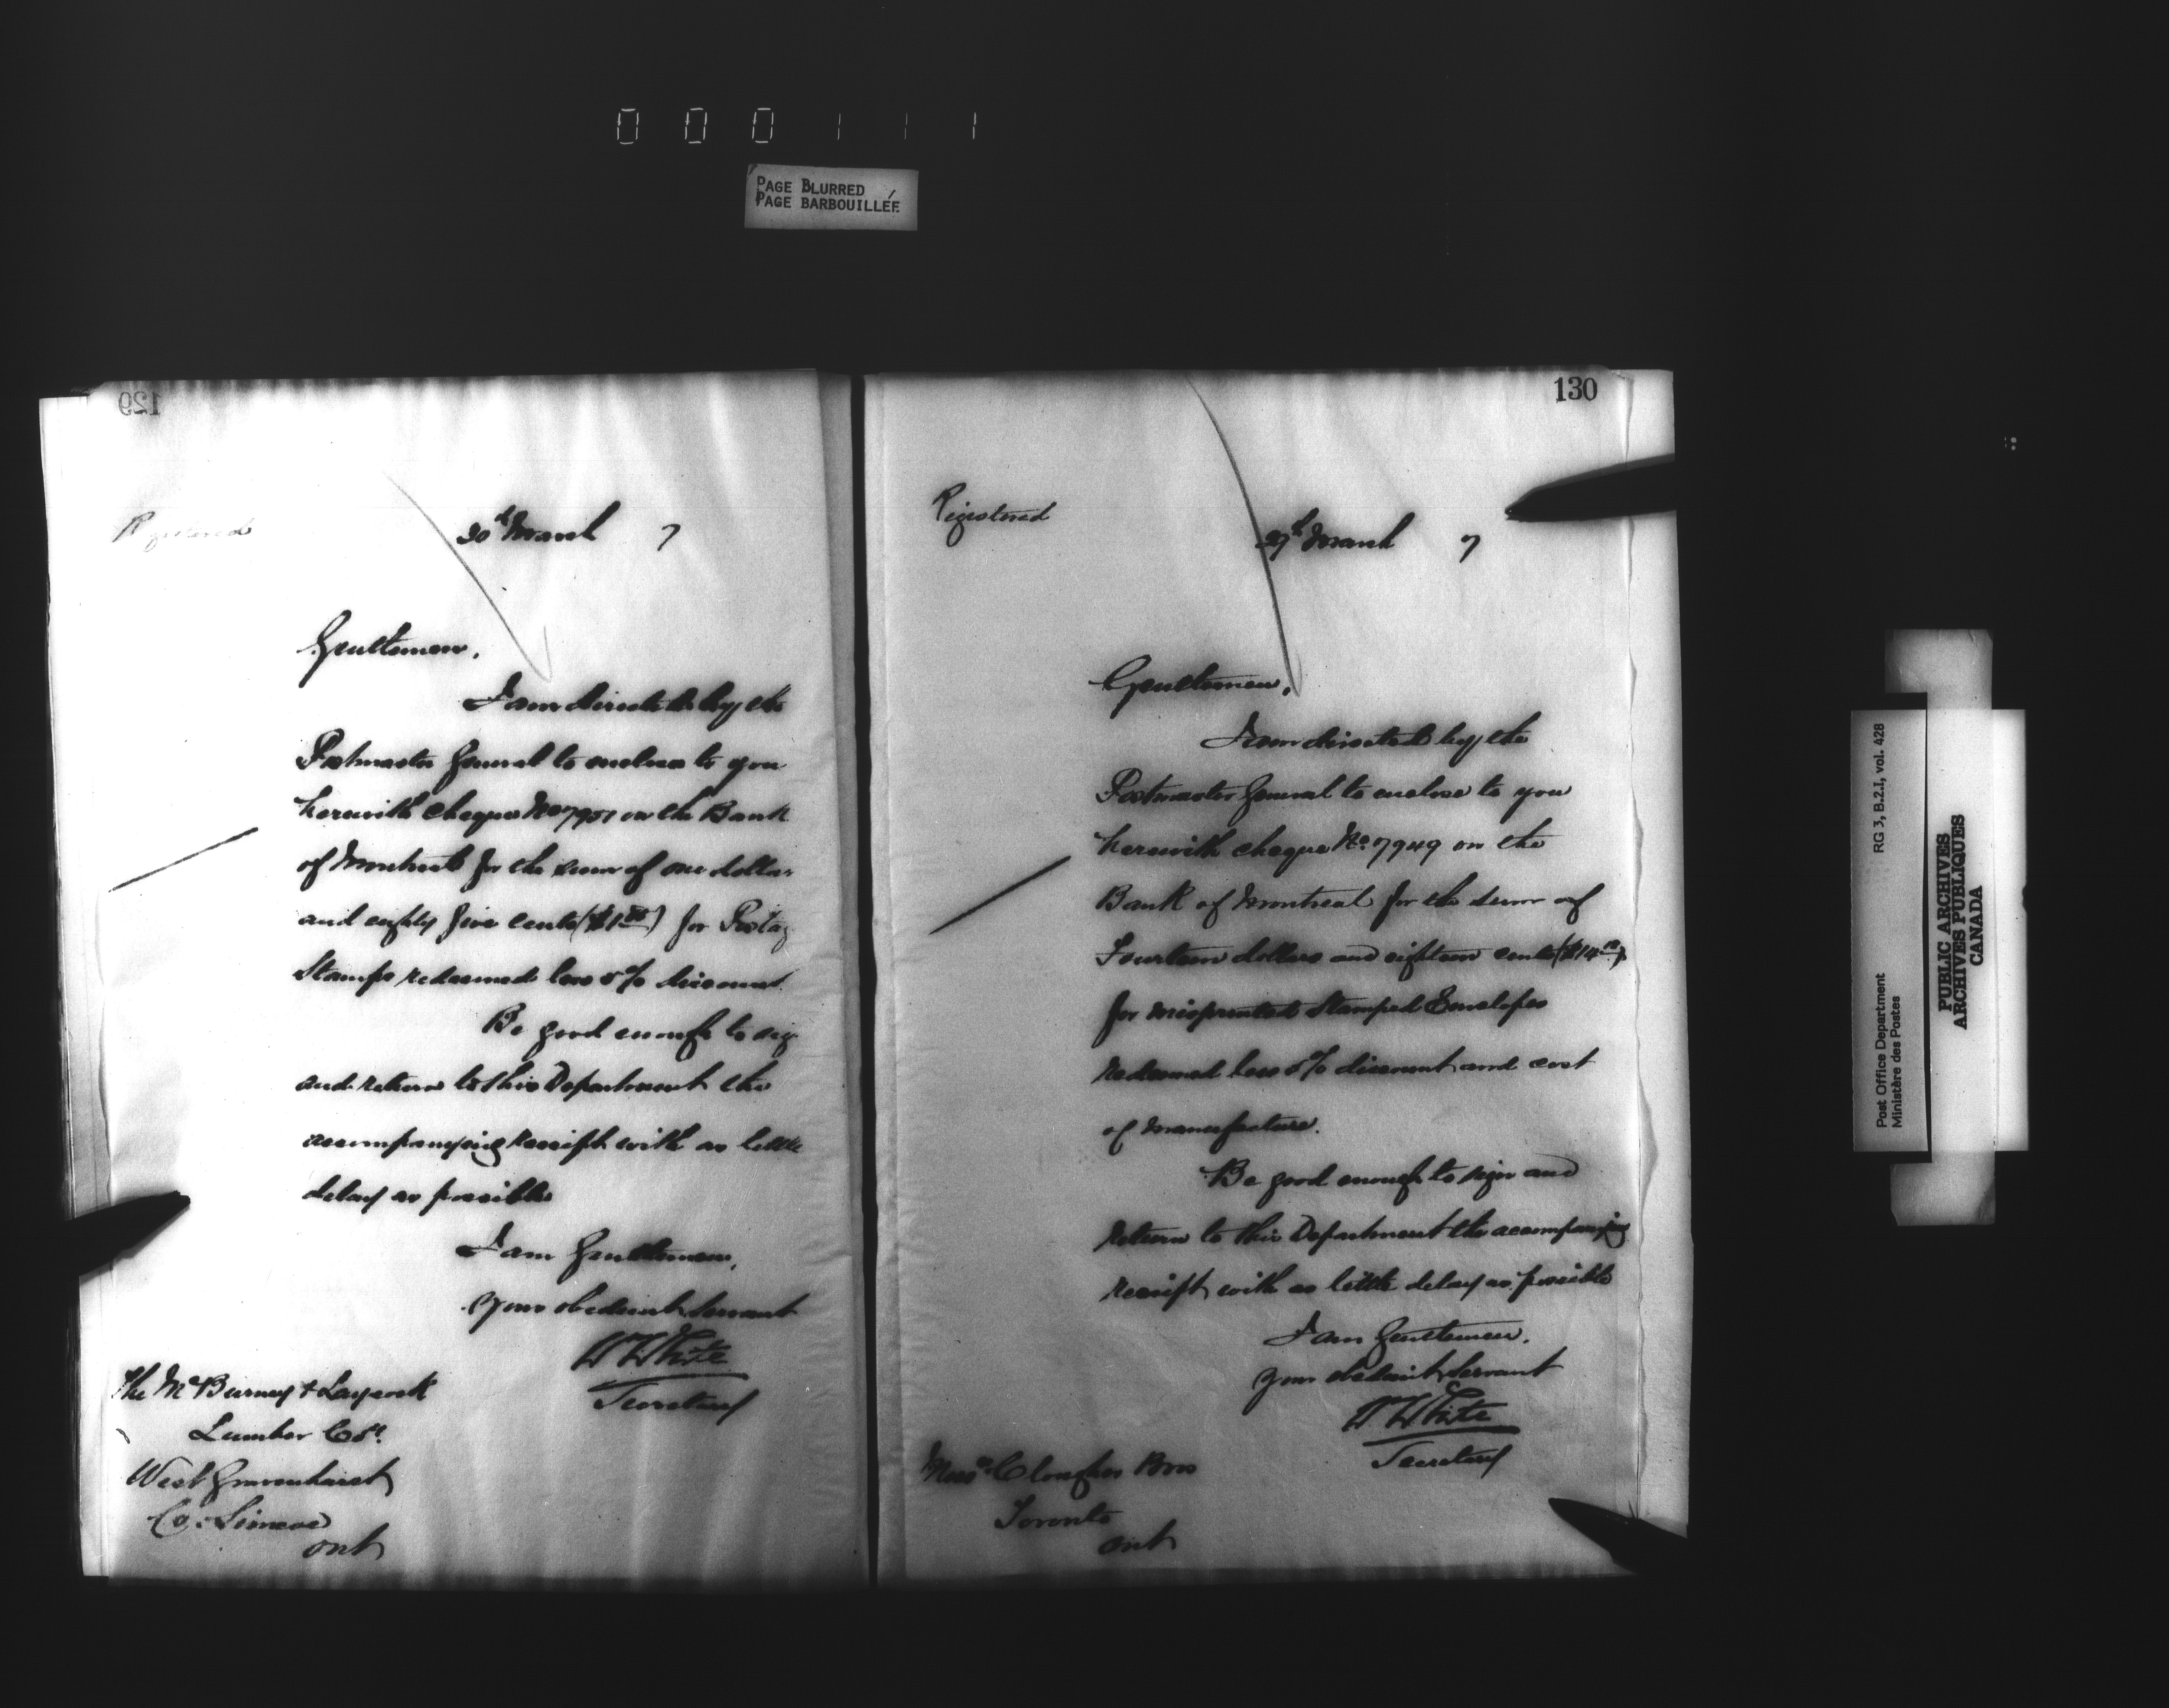 000111
PAGE BLURRED
PAGE BARBOUILLÉE
129
Registered
30th March 7
Gentlemen,
I am directed by the
Postmaster General to enclose to you
herewith cheque No 7951 on the Bank
of Montreal for the sum of one dollar
and eighty five cents ($1.85) for Postag
Stamps redeemed less 5% discount
Be good enough to sig
and return to this Department the
accompanying receipt with as little
delay as possible
I am Gentlemen,
Your obedient Servant
W White
Secretary
The McBurney & Laycock
Lumber Co
West Gravenhurst
Co. Simcoe
Ont
130
Registered
29th March 7
Gentlemen,
I am directed by the
Postmaster General to enclose to you
herewith cheque No. 7949 on the
Bank of Montreal for the sum of
Fourteen dollars and eighteen cents ($14.18)
for misprinted Stamped Envelopes
redeemed less 5% discount and cost
of manufacture.
Be good enough to sign and
return to this Department the accompanying
receipt with as little delay as possible
I am Gentlemen,
Your obedient Servant
W White
Secretary
Messrs Clougher Bros
Toronto
Ont
Post Office Department
Ministère des Postes
RG 3, B.2.I, vol. 428
PUBLIC ARCHIVES
ARCHIVES PUBLIQUES
CANADA